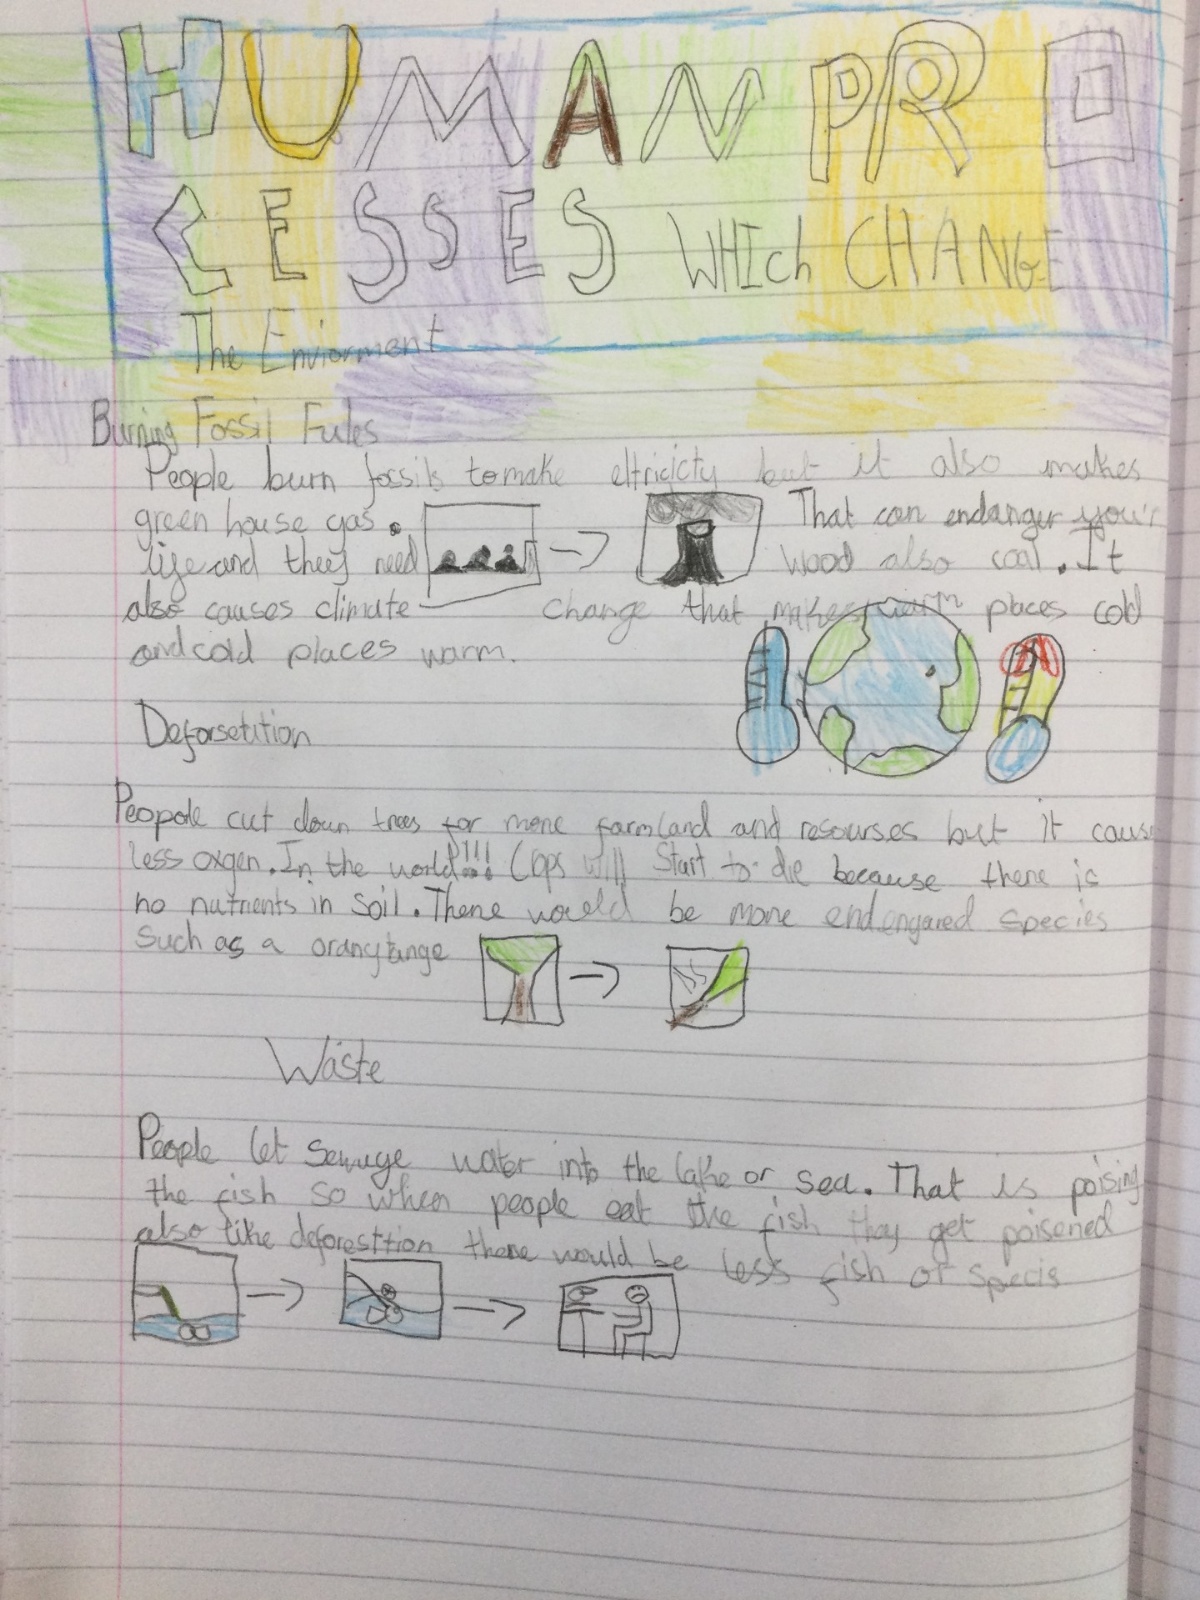 HUMAN PRO
CESSES WHICh CHANGE
The Enviorment
Burning Fossil Fules
People burn fossils to make eltricicty but it also makes
green house gas. That can endanger your
life and they need wood also coal. It
also causes climate change that makes warm places cold
and cold places warm.
Deforsetition
Peopole cut down trees for more farmland and resourses but it caus
less oxgen. In the world!!! Crops will Start to die because there is
no nutrients in soil. There would be more endengared species
such as a orangtange
Waste
People let Sewuge water into the lake or sea. That is poising
the fish so when people eat the fish they get poisened
also like deforesttion there would be less fish or specis